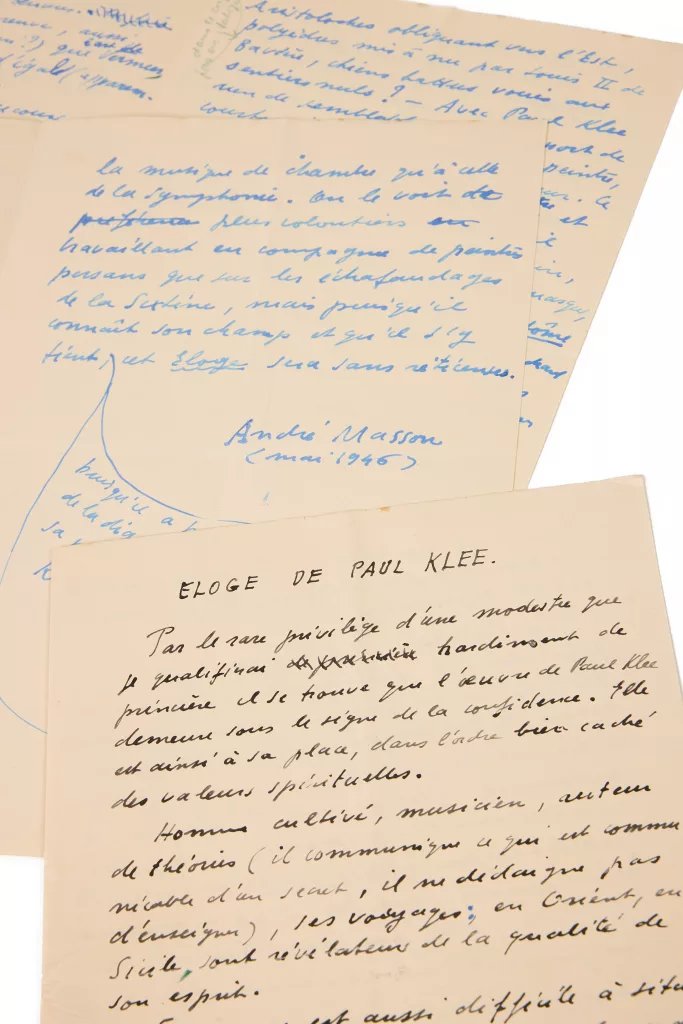 aussi
que Vermeer
d'égal
Aristoloches obliquant vers l'Est,
polyèdres mis à nu par Louis II de
Bavière, chiens battus voués aux
sentiers nuls ? — Avec Paul Klee
rien de semblable
la musique de chambre qu'à celle
de la Symphonie. On le voit de
plus volontiers en
travaillant en compagnie de peintres
persans que sur les échafaudages
de la Sixtine, mais puisqu'il
connaît son champ et qu'il s'y
tient, cet Eloge sera sans réticences.
André Masson
(mai 1946)
puisqu'il a
de la
sa
ELOGE DE PAUL KLEE.
Par le rare privilège d'une modestie que
je qualifierai hardiment de
princière il se trouve que l'œuvre de Paul Klee
demeure sous le signe de la confidence. Elle
est ainsi à sa place, dans l'ordre bien caché
des valeurs spirituelles.
Homme cultivé, musicien, auteur
de théories (il communique ce qui est commu
nicable d'un secret, il ne dédaigne pas
d'enseigner), ses voyages, en Orient, en
Sicile, sont révélateurs de la qualité de
son esprit.
est aussi difficile à situ